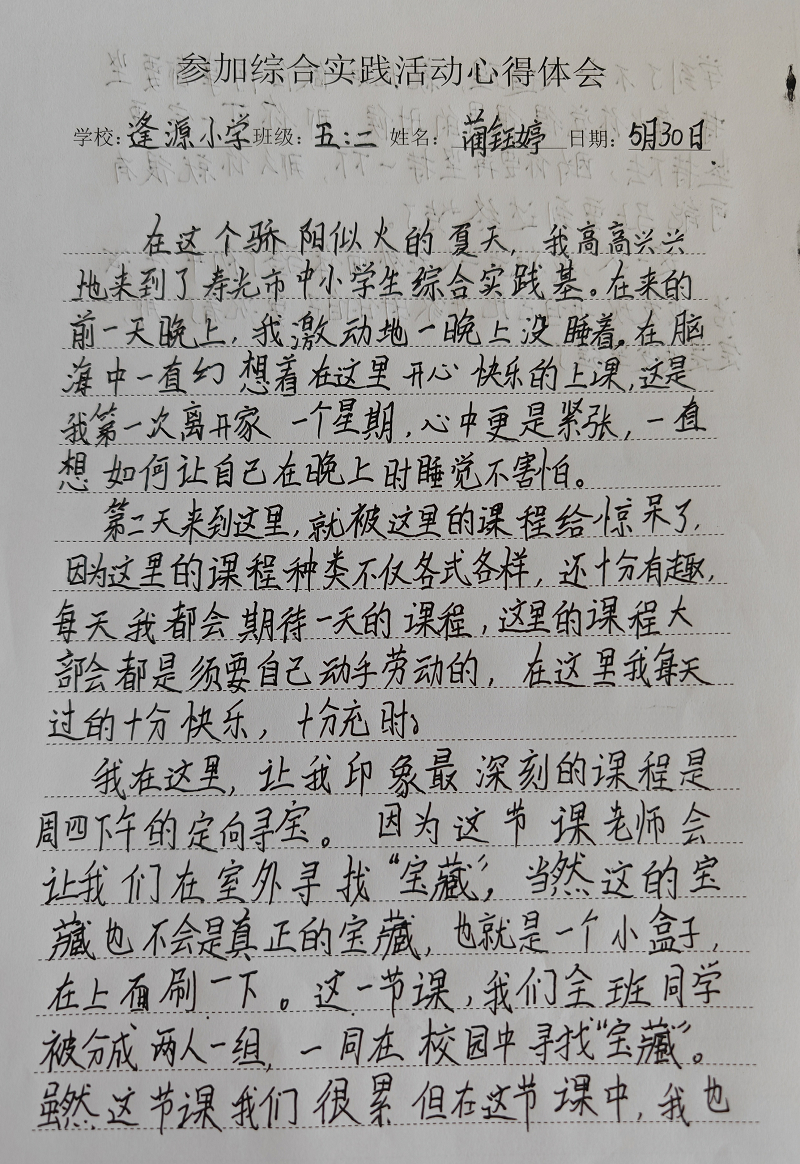 参加综合实践活动心得体会
学校：逢源小学班级：五:二 姓名：蒲钰婷 日期：5月30日
在这个骄阳似火的夏天，我高高兴兴
地来到了寿光市中小学生综合实践基。在来的
前一天晚上，我激动地一晚上没睡着。在脑
海中一直幻想着在这里开心快乐的上课，这是
我第一次离开家一个星期，心中更是紧张，一直
想如何让自己在晚上时睡觉不害怕。
第二天来到这里，就被这里的课程给惊呆了，
因为这里的课程种类不仅各式各样，还十分有趣，
每天我都会期待一天的课程，这里的课程大
部会都是须要自己动手劳动的，在这里我每天
过的十分快乐，十分充时。
我在这里，让我印象最深刻的课程是
周四下午的定向寻宝。因为这节课老师会
让我们在室外寻找“宝藏”，当然这的宝
藏也不会是真正的宝藏，也就是一个小盒子，
在上面刷一下。这一节课，我们全班同学
被分成两人一组，一同在校园中寻找“宝藏”。
虽然这节课我们很累但在这节课中，我也